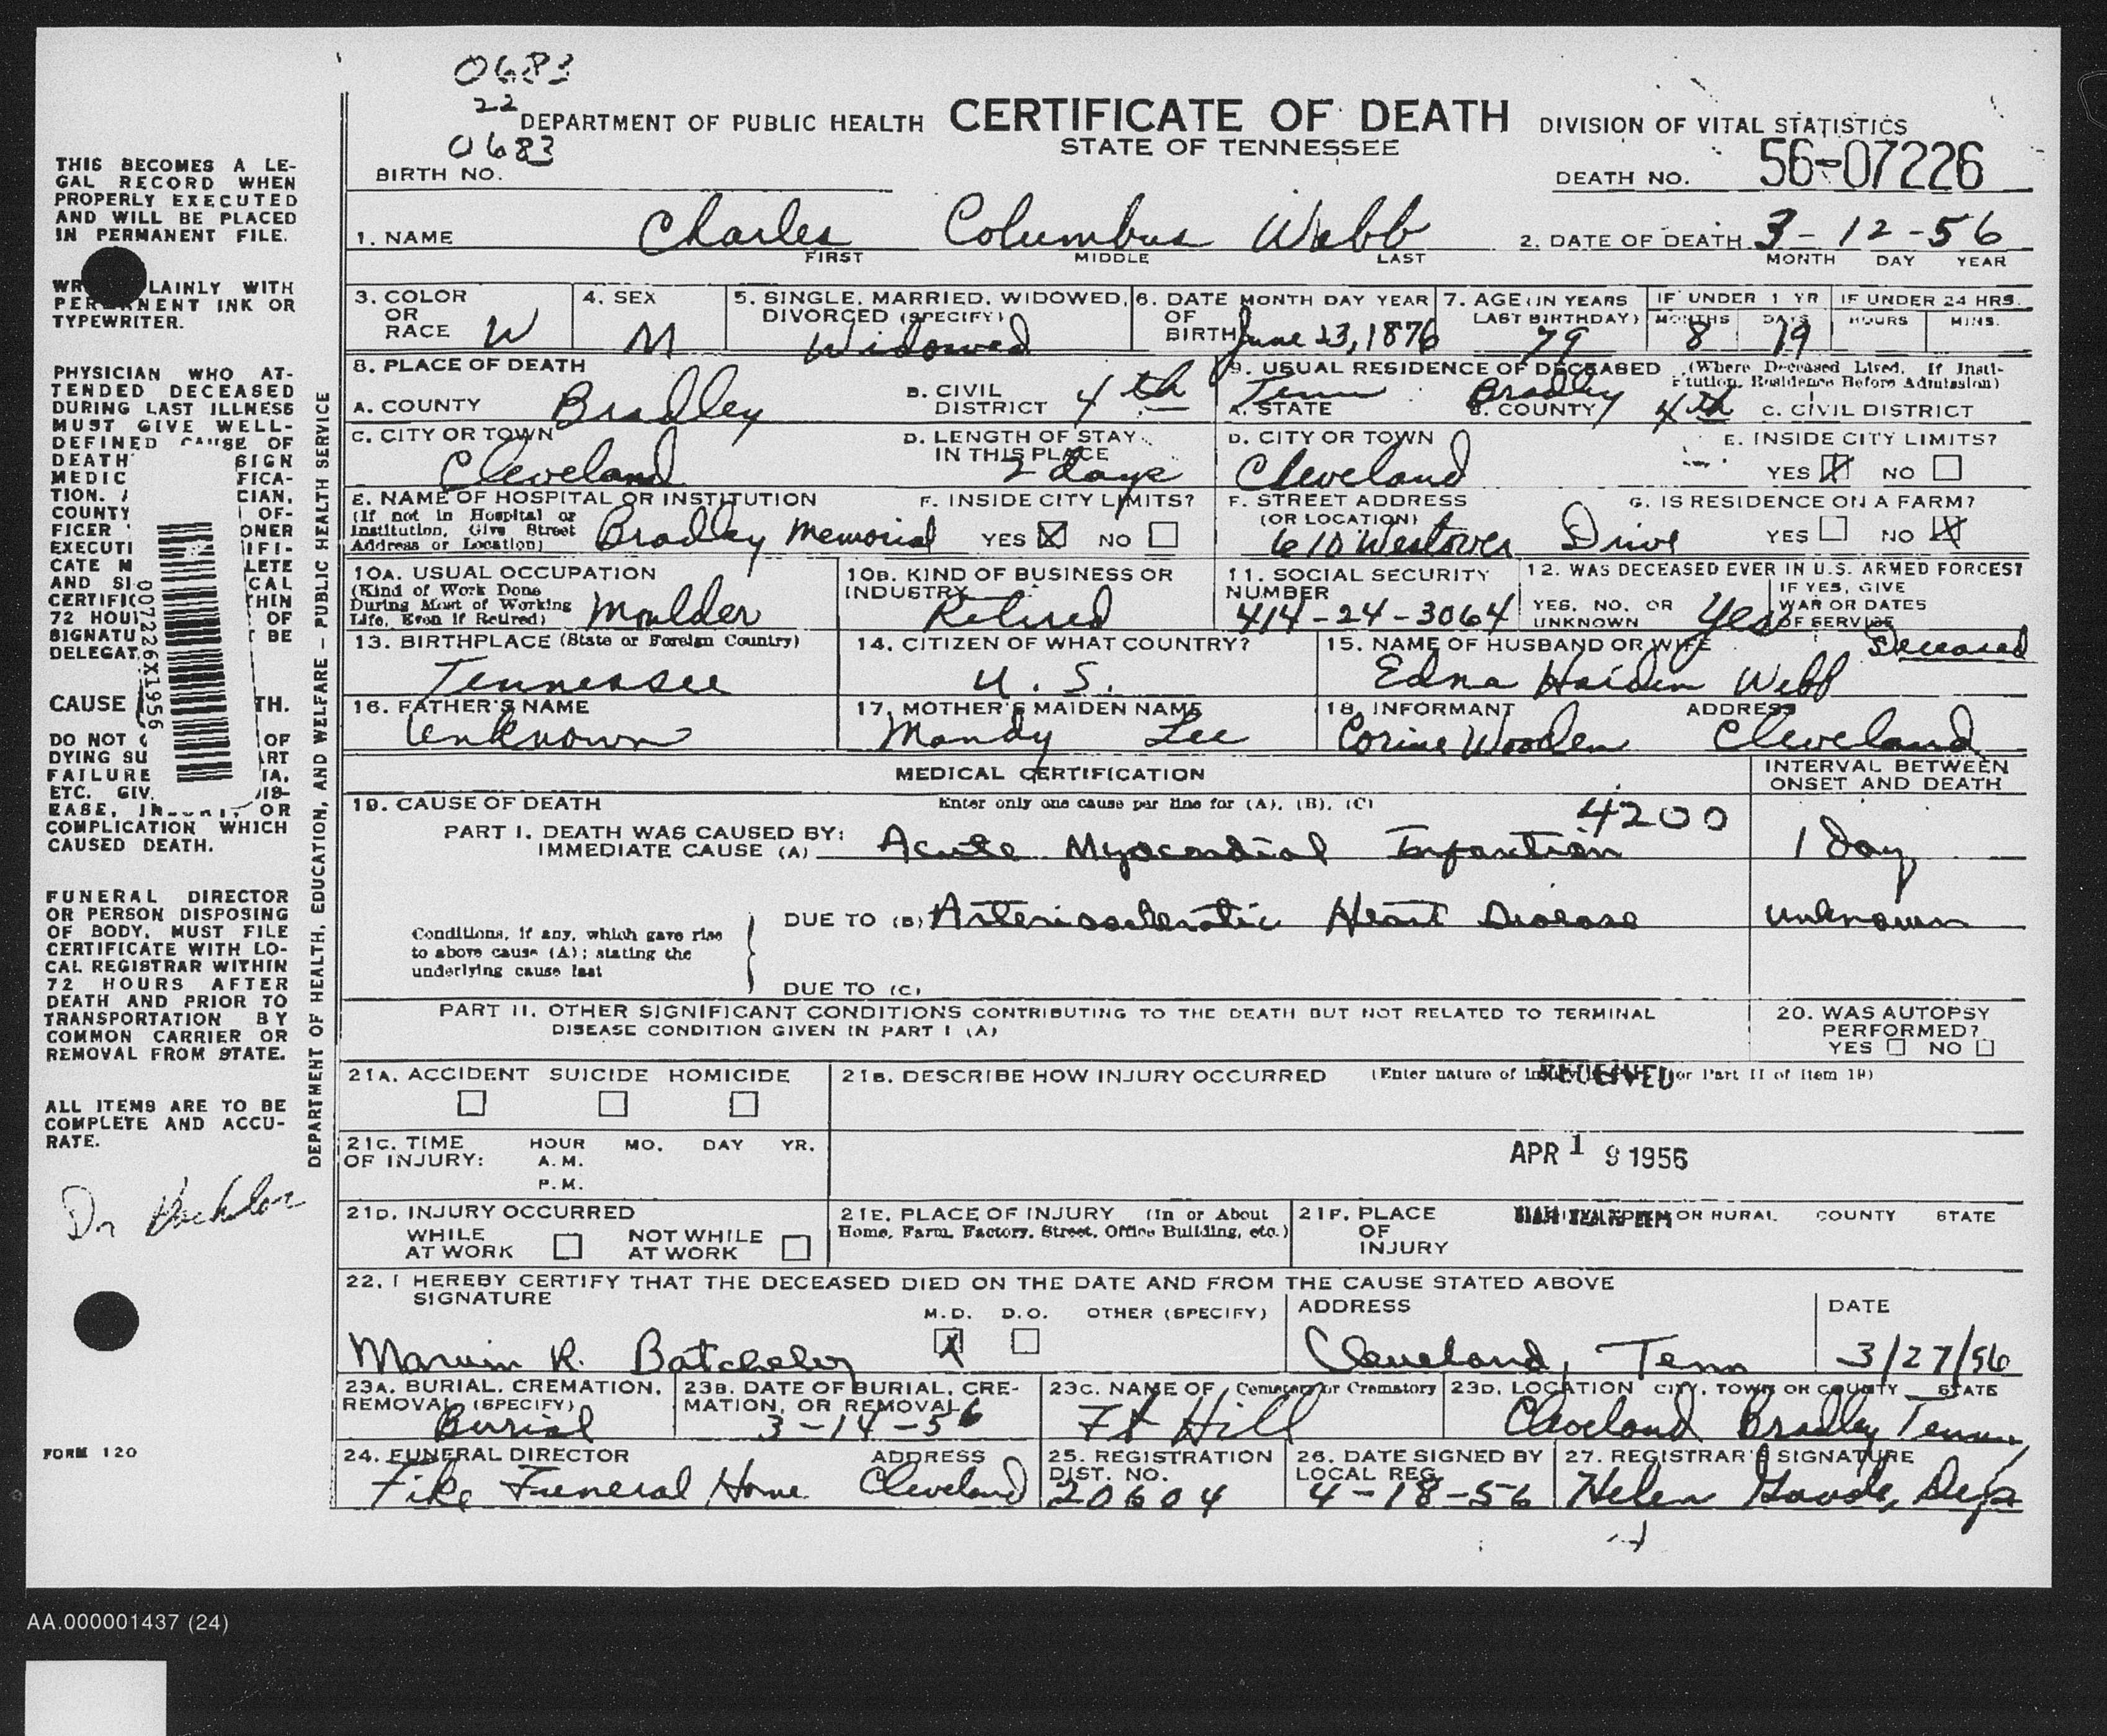 0683
22
0683
DEPARTMENT OF PUBLIC HEALTH CERTIFICATE OF DEATH DIVISION OF VITAL STATISTICS
STATE OF TENNESSEE
BIRTH NO.
DEATH NO. 56-07226
1. NAME Charles Columbus Webb 2. DATE OF DEATH 3-12-56
FIRST MIDDLE LAST MONTH DAY YEAR
3. COLOR OR RACE W
4. SEX M
5. SINGLE, MARRIED, WIDOWED, DIVORCED (SPECIFY) Widowed
6. DATE OF BIRTH MONTH DAY YEAR June 23, 1876
7. AGE (IN YEARS LAST BIRTHDAY) 79
IF UNDER 1 YR MONTHS 8 DAYS 19
IF UNDER 24 HRS. HOURS MINS.
8. PLACE OF DEATH
A. COUNTY Bradley
B. CIVIL DISTRICT 4th
9. USUAL RESIDENCE OF DECEASED (Where Deceased Lived. If Institution, Residence Before Admission)
A. STATE Tenn B. COUNTY Bradley 4th C. CIVIL DISTRICT
C. CITY OR TOWN Cleveland
D. LENGTH OF STAY IN THIS PLACE 2 days
D. CITY OR TOWN Cleveland
E. INSIDE CITY LIMITS? YES X NO
E. NAME OF HOSPITAL OR INSTITUTION
(If not in Hospital or Institution, Give Street Address or Location) Bradley Memorial
F. INSIDE CITY LIMITS? YES X NO
F. STREET ADDRESS (OR LOCATION) 610 Westover Drive
G. IS RESIDENCE ON A FARM? YES NO X
10A. USUAL OCCUPATION (Kind of Work Done During Most of Working Life, Even if Retired) Moulder
10B. KIND OF BUSINESS OR INDUSTRY Retired
11. SOCIAL SECURITY NUMBER 414-24-3064
12. WAS DECEASED EVER IN U.S. ARMED FORCES? YES, NO, OR UNKNOWN Yes IF YES, GIVE WAR OR DATES OF SERVICE
13. BIRTHPLACE (State or Foreign Country) Tennessee
14. CITIZEN OF WHAT COUNTRY? U. S.
15. NAME OF HUSBAND OR WIFE Edna Haiden Webb Deceased
16. FATHER'S NAME Unknown
17. MOTHER'S MAIDEN NAME Mandy Lee
18. INFORMANT Corine Wooden ADDRESS Cleveland
MEDICAL CERTIFICATION
INTERVAL BETWEEN ONSET AND DEATH
19. CAUSE OF DEATH Enter only one cause per line for (A), (B), (C)
4200
PART I. DEATH WAS CAUSED BY:
IMMEDIATE CAUSE (A) Acute Myocardial Infarction 1 Day
DUE TO (B) Arteriosclerotic Heart Disease unknown
Conditions, if any, which gave rise
to above cause (A); stating the
underlying cause last
DUE TO (C)
PART II. OTHER SIGNIFICANT CONDITIONS CONTRIBUTING TO THE DEATH BUT NOT RELATED TO TERMINAL
DISEASE CONDITION GIVEN IN PART I (A)
20. WAS AUTOPSY PERFORMED?
YES NO
21A. ACCIDENT SUICIDE HOMICIDE
21B. DESCRIBE HOW INJURY OCCURRED (Enter nature of injury or Part II of Item 19)
RECEIVED
21C. TIME OF INJURY: HOUR MO. DAY YR.
A.M.
P.M.
APR 1 9 1956
21D. INJURY OCCURRED
WHILE AT WORK NOT WHILE AT WORK
21E. PLACE OF INJURY (In or About Home, Farm, Factory, Street, Office Building, etc.)
21F. PLACE OF INJURY OR RURAL COUNTY STATE
22. I HEREBY CERTIFY THAT THE DECEASED DIED ON THE DATE AND FROM THE CAUSE STATED ABOVE
SIGNATURE M.D. D.O. OTHER (SPECIFY) ADDRESS DATE
Marvin R. Batchelor X Cleveland, Tenn 3/27/56
23A. BURIAL, CREMATION, REMOVAL (SPECIFY) Burial
23B. DATE OF BURIAL, CREMATION, OR REMOVAL 3-14-56
23C. NAME OF Cemetery or Crematory Ft Hill
23D. LOCATION CITY, TOWN OR COUNTY STATE Cleveland Bradley Tenn
24. FUNERAL DIRECTOR ADDRESS Fike Funeral Home Cleveland
25. REGISTRATION DIST. NO. 20604
26. DATE SIGNED BY LOCAL REG. 4-18-56
27. REGISTRAR'S SIGNATURE Helen Goode, Dep
THIS BECOMES A LE-
GAL RECORD WHEN
PROPERLY EXECUTED
AND WILL BE PLACED
IN PERMANENT FILE.
WR LAINLY WITH
PER NENT INK OR
TYPEWRITER.
PHYSICIAN WHO AT-
TENDED DECEASED
DURING LAST ILLNESS
MUST GIVE WELL-
DEFINED CAUSE OF
DEATH SIGN
MEDIC FICA-
TION. CIAN,
COUNTY OF-
FICER ONER
EXECUTI IFI-
CATE M LETE
AND SI CAL
CERTIFIC THIN
72 HOU OF
SIGNATU T BE
DELEGAT
CAUSE TH.
DO NOT OF
DYING SU ART
FAILURE IA,
ETC. GIV DIS-
EASE, IN OR
COMPLICATION WHICH
CAUSED DEATH.
007226X1956
FUNERAL DIRECTOR
OR PERSON DISPOSING
OF BODY, MUST FILE
CERTIFICATE WITH LO-
CAL REGISTRAR WITHIN
72 HOURS AFTER
DEATH AND PRIOR TO
TRANSPORTATION BY
COMMON CARRIER OR
REMOVAL FROM STATE.
ALL ITEMS ARE TO BE
COMPLETE AND ACCU-
RATE.
Dr
FORM 120
DEPARTMENT OF HEALTH, EDUCATION, AND WELFARE - PUBLIC HEALTH SERVICE
AA.000001437 (24)